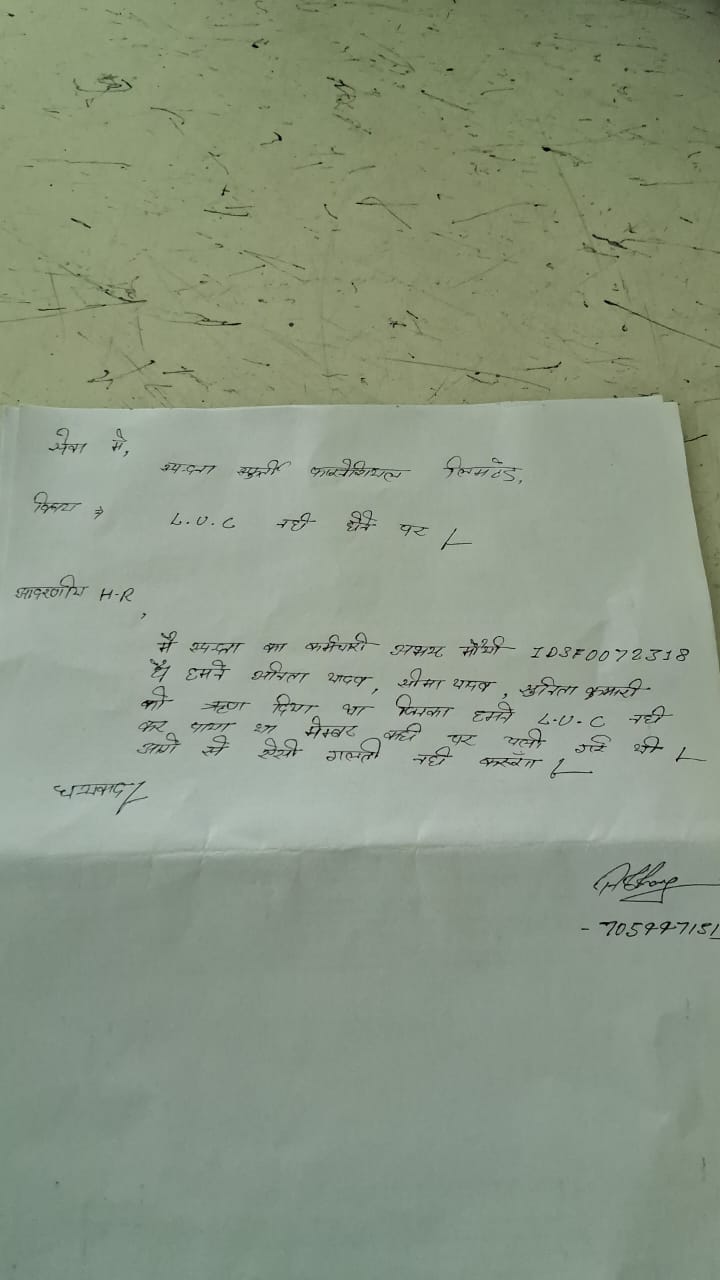 सेवा में,
स्पन्दना स्फूर्ती फाइनेंशियल लिमटेड,
विषय →
L.U.C नही होने पर
आदरणीय H-R
,
मै स्पन्दना का कर्मचारी अभय मौर्या IDSF0072318
है हमने अनिता यादव, सीमा यादव, सुनिता कुमारी
को ऋण दिया था जिसका हमने L.U.C नही
कर पाया था मेम्बर कही पर चली गई थी
आगे से ऐसी गलती नही करूंगा
धन्यवाद